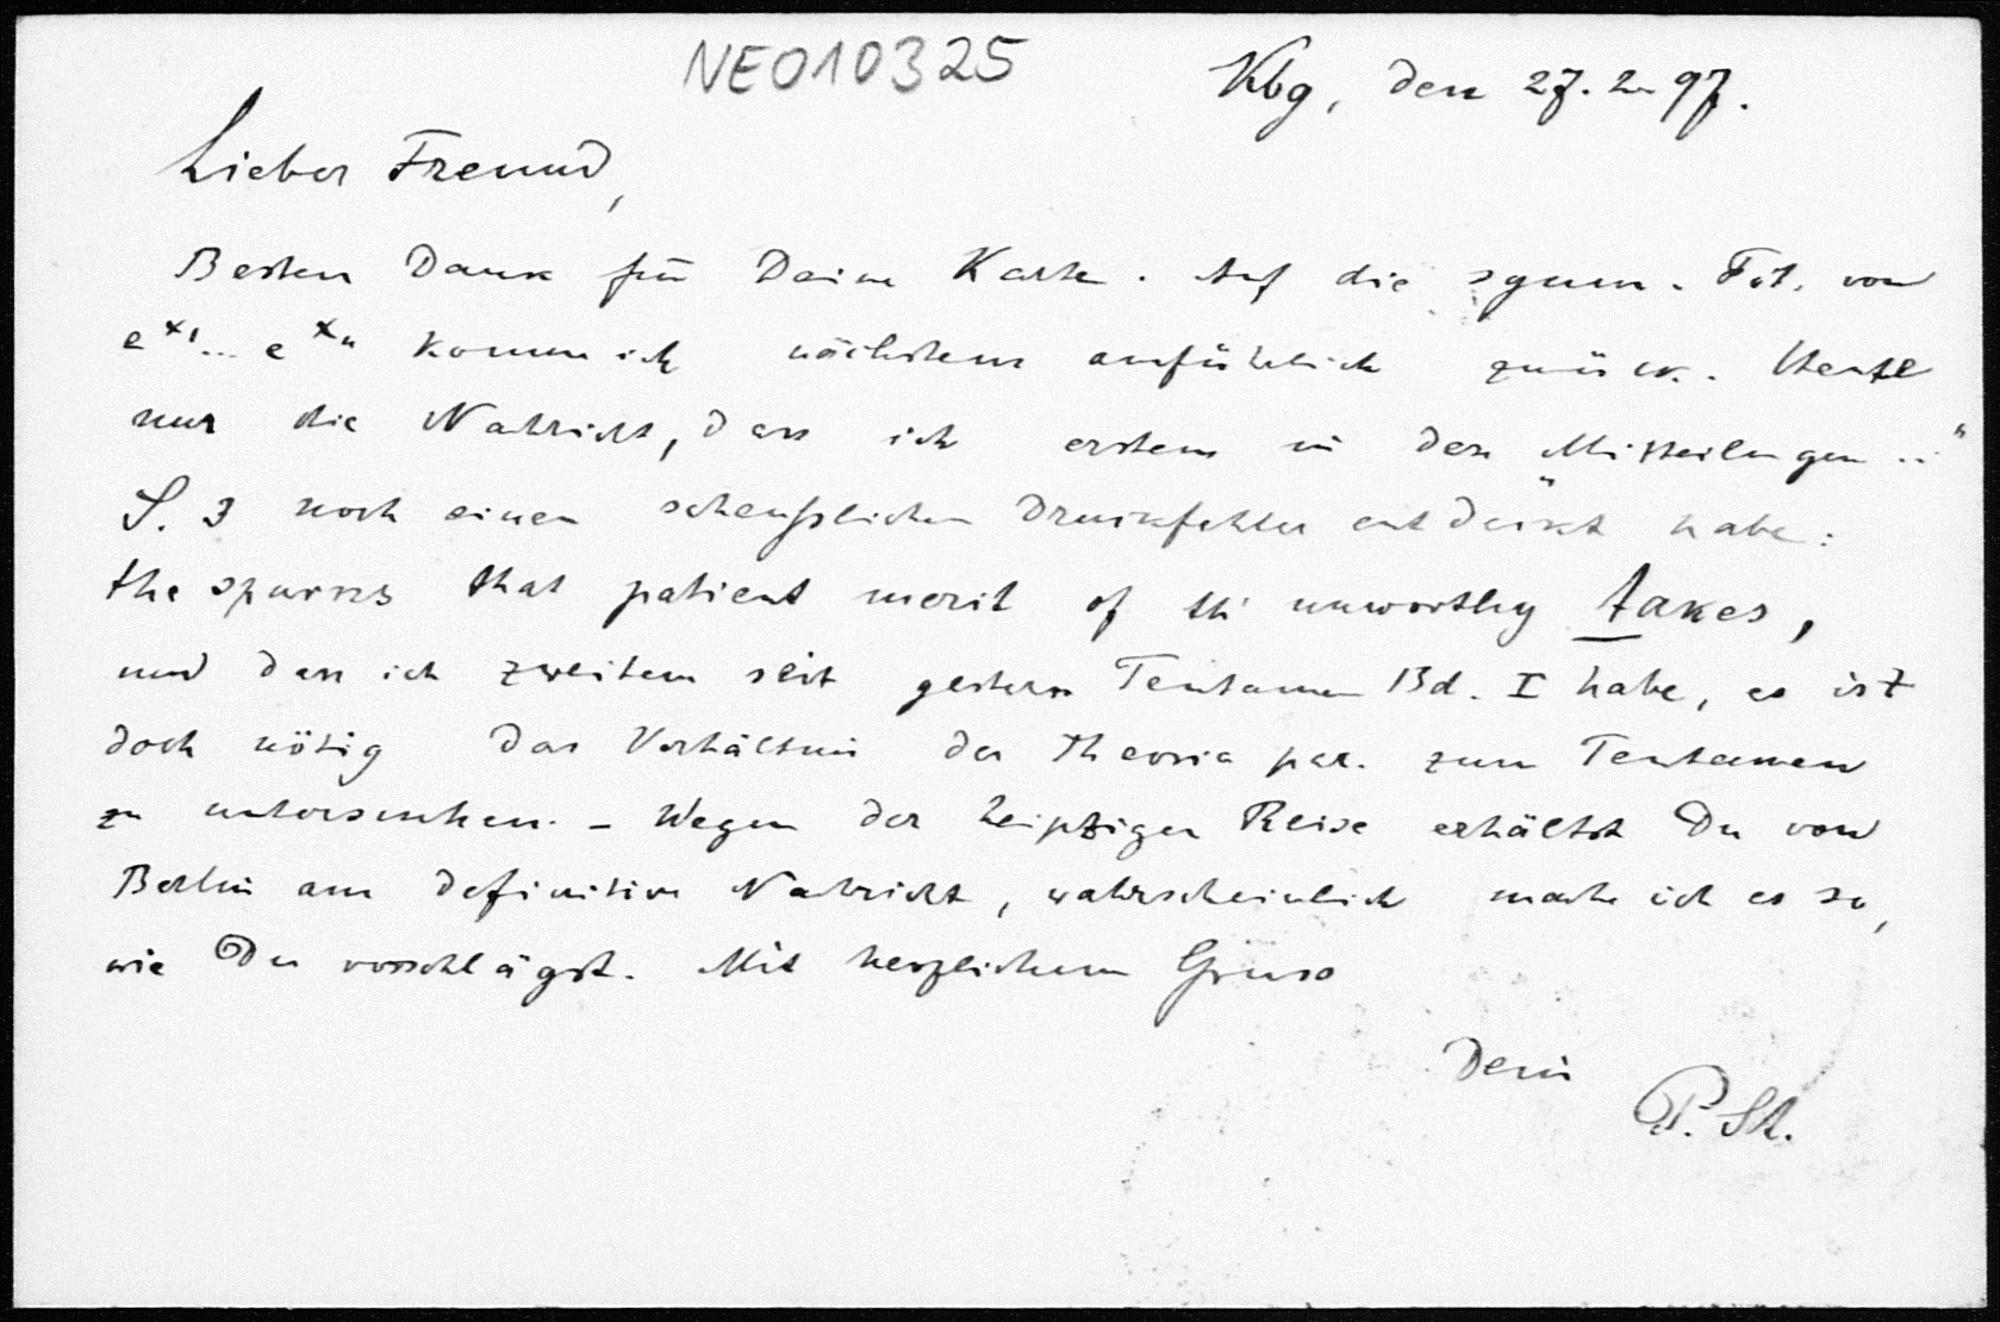 NE010325
Kbg, den 27.2.97.
Lieber Freund,
Besten Dank für Deine Karte. Auf die symm. Fct. von
e^x1 ... e^xn komme ich nächstens ausführlich zurück. Heute
nur die Nachricht, dass ich erstens in den „Mitteilungen ..“
S. 3 noch einen scheußlichen Druckfehler entdeckt habe:
the spurns that patient merit of th' unworthy takes,
und dass ich zweitens seit gestern Tentamen Bd. I habe, es ist
doch nötig das Verhältnis der Theoria par. zum Tentamen
zu untersuchen. – Wegen der Leipziger Reise erhältst Du von
Berlin aus definitive Nachricht, wahrscheinlich mache ich es so,
wie Du vorschlägst. Mit herzlichem Gruss
Dein
P. St.